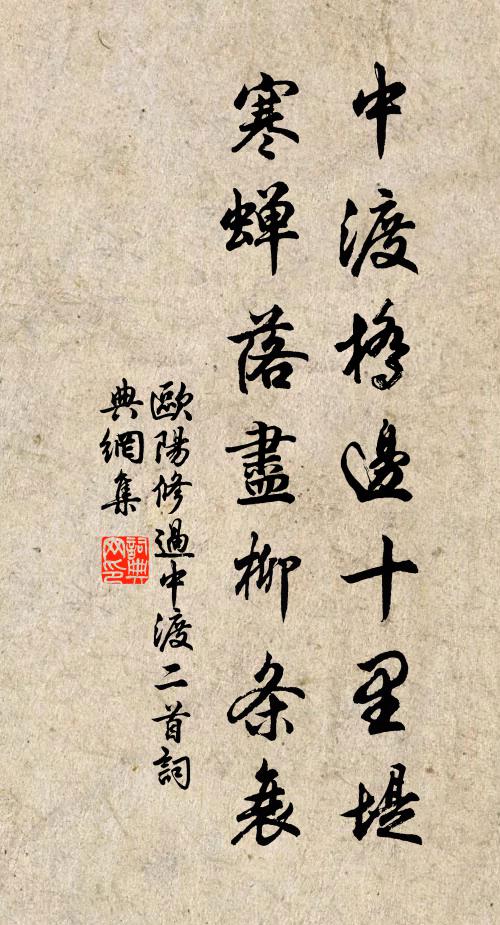 中渡橋邊十里堤
寒蟬落盡柳条衰
歐陽修過中渡二首詞
典網集
詞典
网印